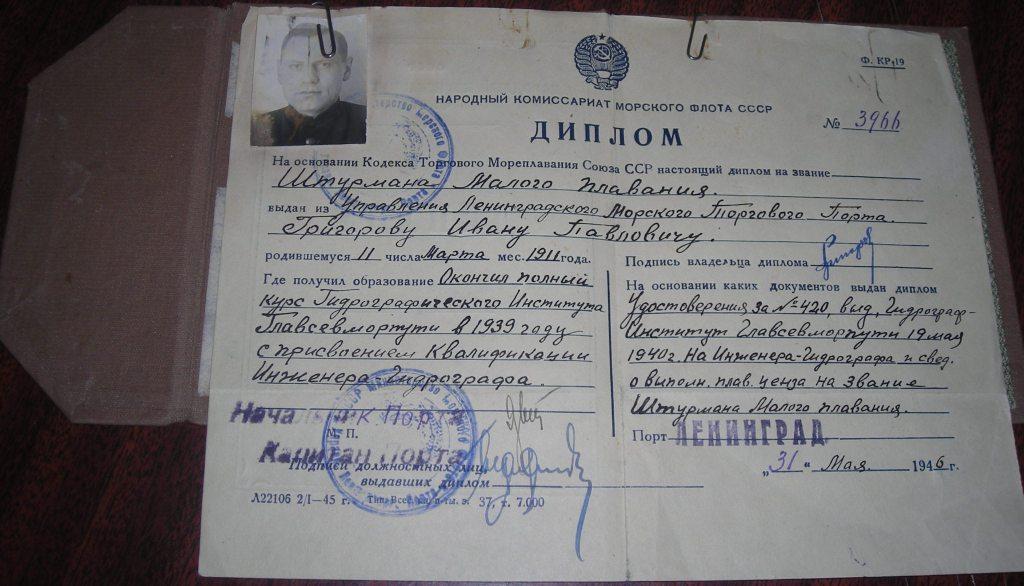 Ф. КР-19
НАРОДНЫЙ КОМИССАРИАТ МОРСКОГО ФЛОТА СССР
ДИПЛОМ
№ 3966
На основании Кодекса Торгового Мореплавания Союза ССР настоящий диплом на звание
Штурмана Малого плавания.
выдан из Управления Ленинградского Морского Торгового Порта.
Григорову Ивану Павловичу.
родившемуся 11 числа Марта мес. 1911 года.
Где получил образование Окончил полный
курс Гидрографического Института
Главсевморпути в 1939 году
с присвоением Квалификации
Инженера-Гидрографа.
Начальник Порта
М. П.
Капитан Порта
Подписи должностных лиц,
выдавших диплом
Л22106 2/I—45 г. Тип. з. 37, т. 7.000
Подпись владельца диплома
На основании каких документов выдан диплом
Удостоверения за №420, выд. Гидрограф-
Институт Главсевморпути 19 мая
1940г. На Инженера-Гидрографа и свед.
о выполн. плав. ценза на звание
Штурмана Малого плавания.
Порт ЛЕНИНГРАД
„31" Мая 1946 г.